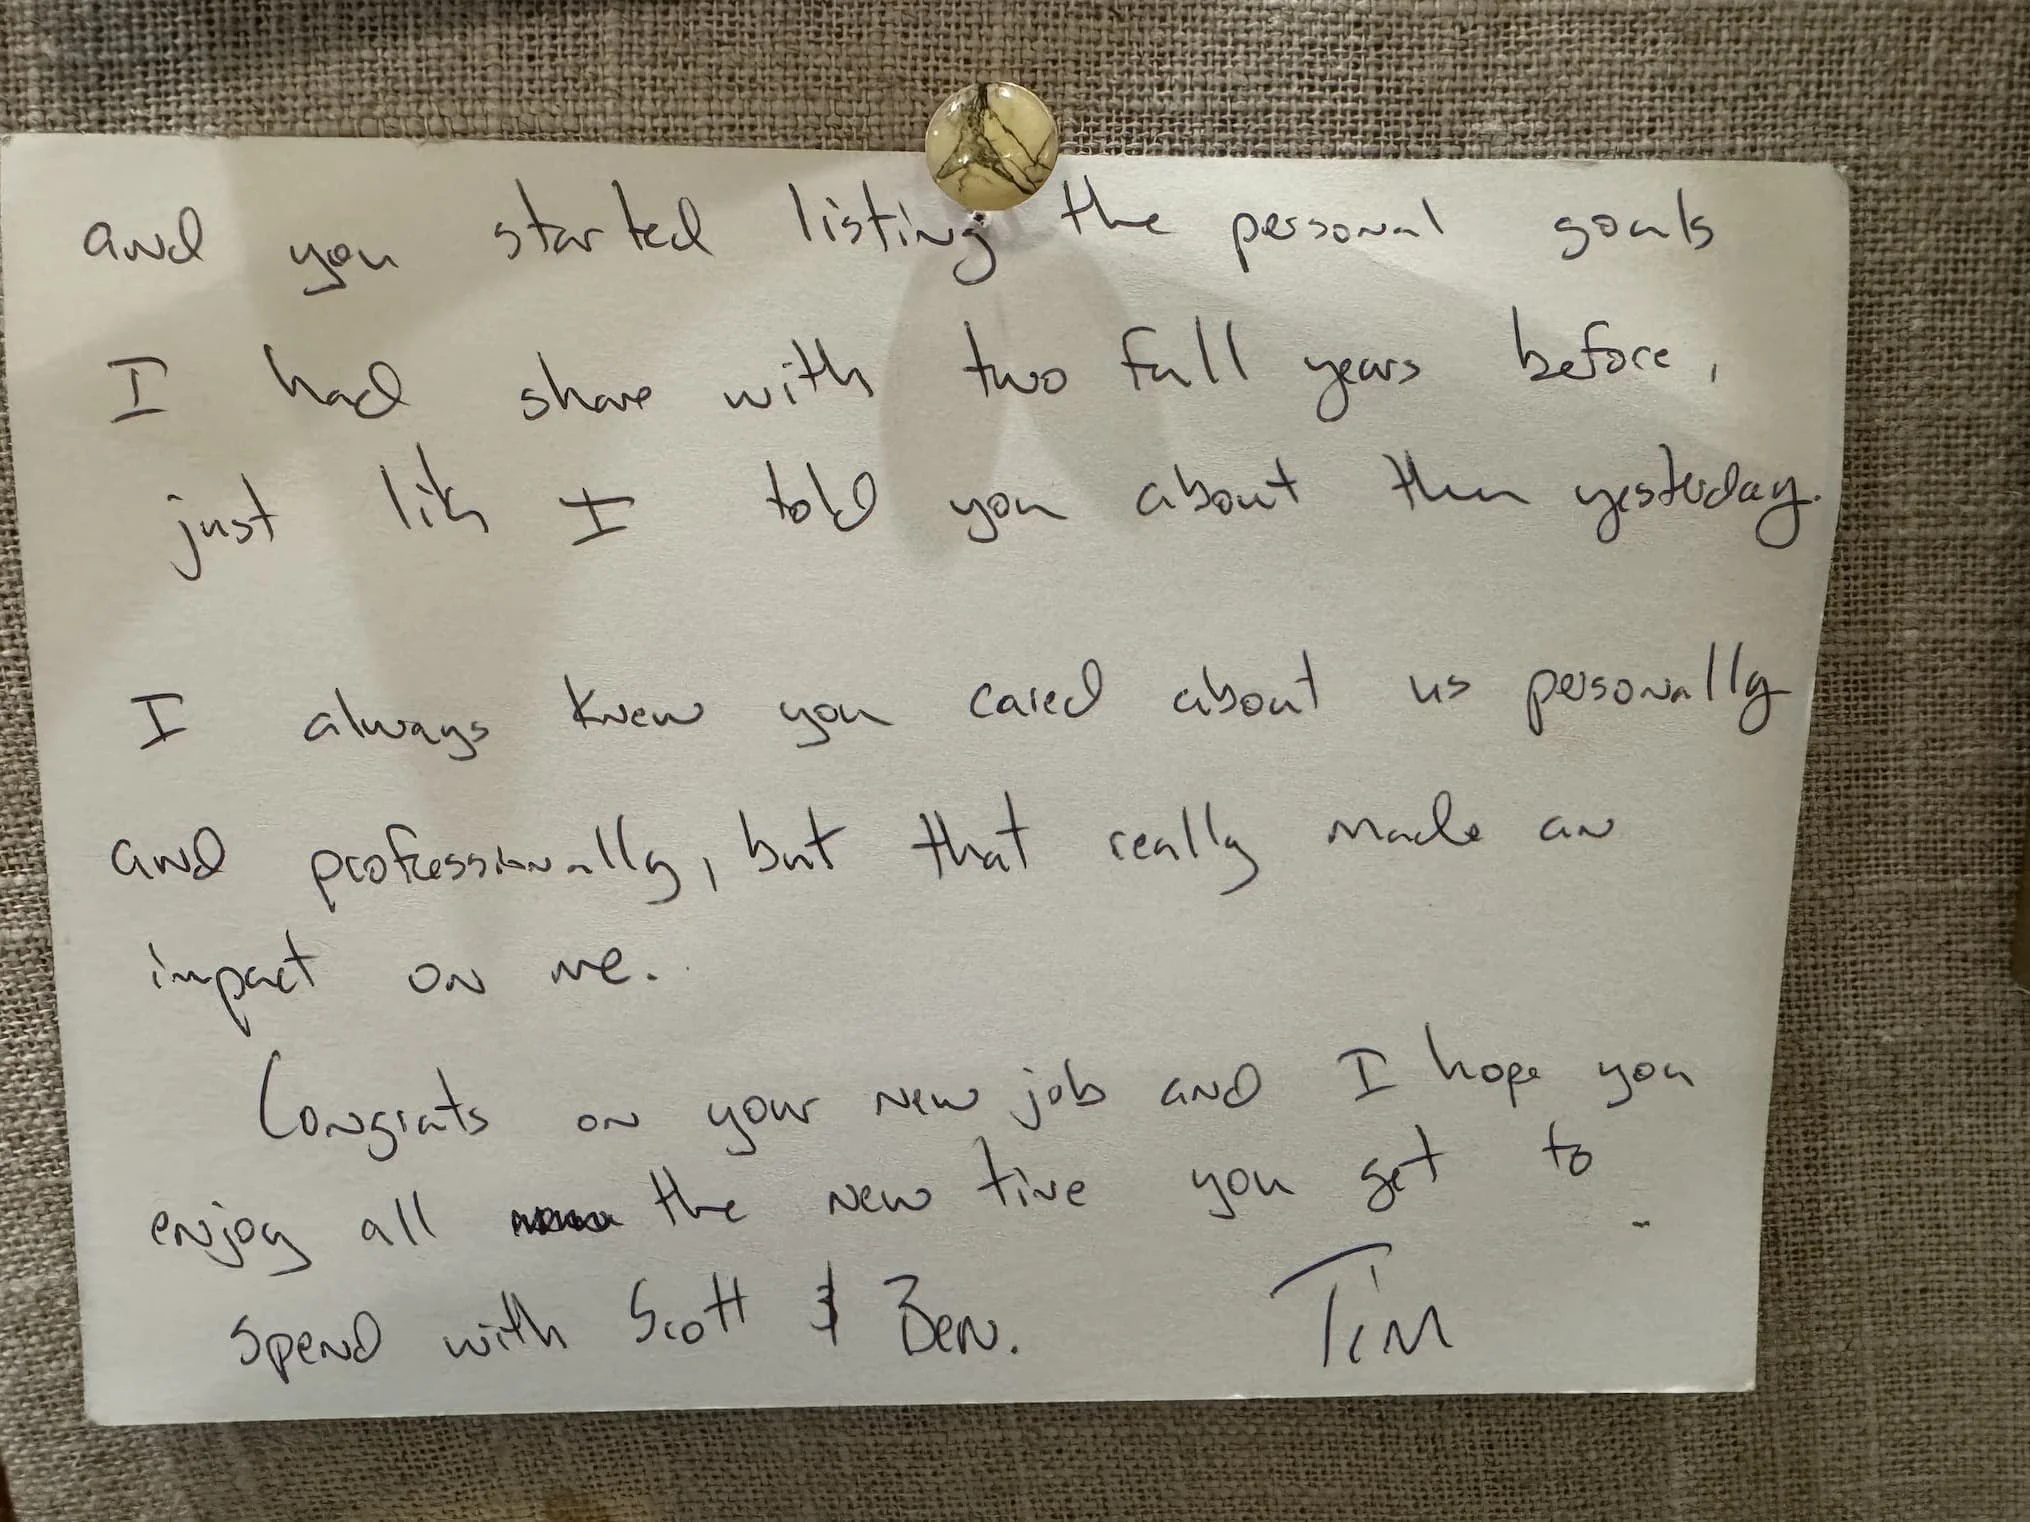 and you started listing the personal goals
I had share with two full years before,
just like I told you about them yesterday.
I always knew you cared about us personally
and professionally, but that really made an
impact on me.
Congrats on your new job and I hope you
enjoy all the new time you get to
spend with Scott & Ben. Tim